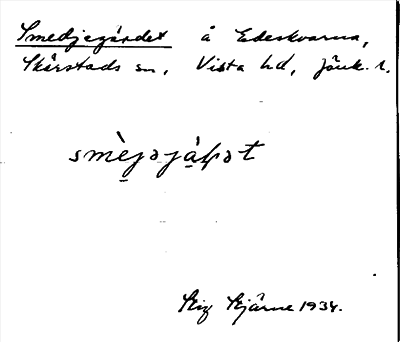 Smedjegärdet å Edeskvarna,
Skärstads sn, Vista hd, Jönk. l.
smèjəjáḷət
Stig Stjärne 1934.